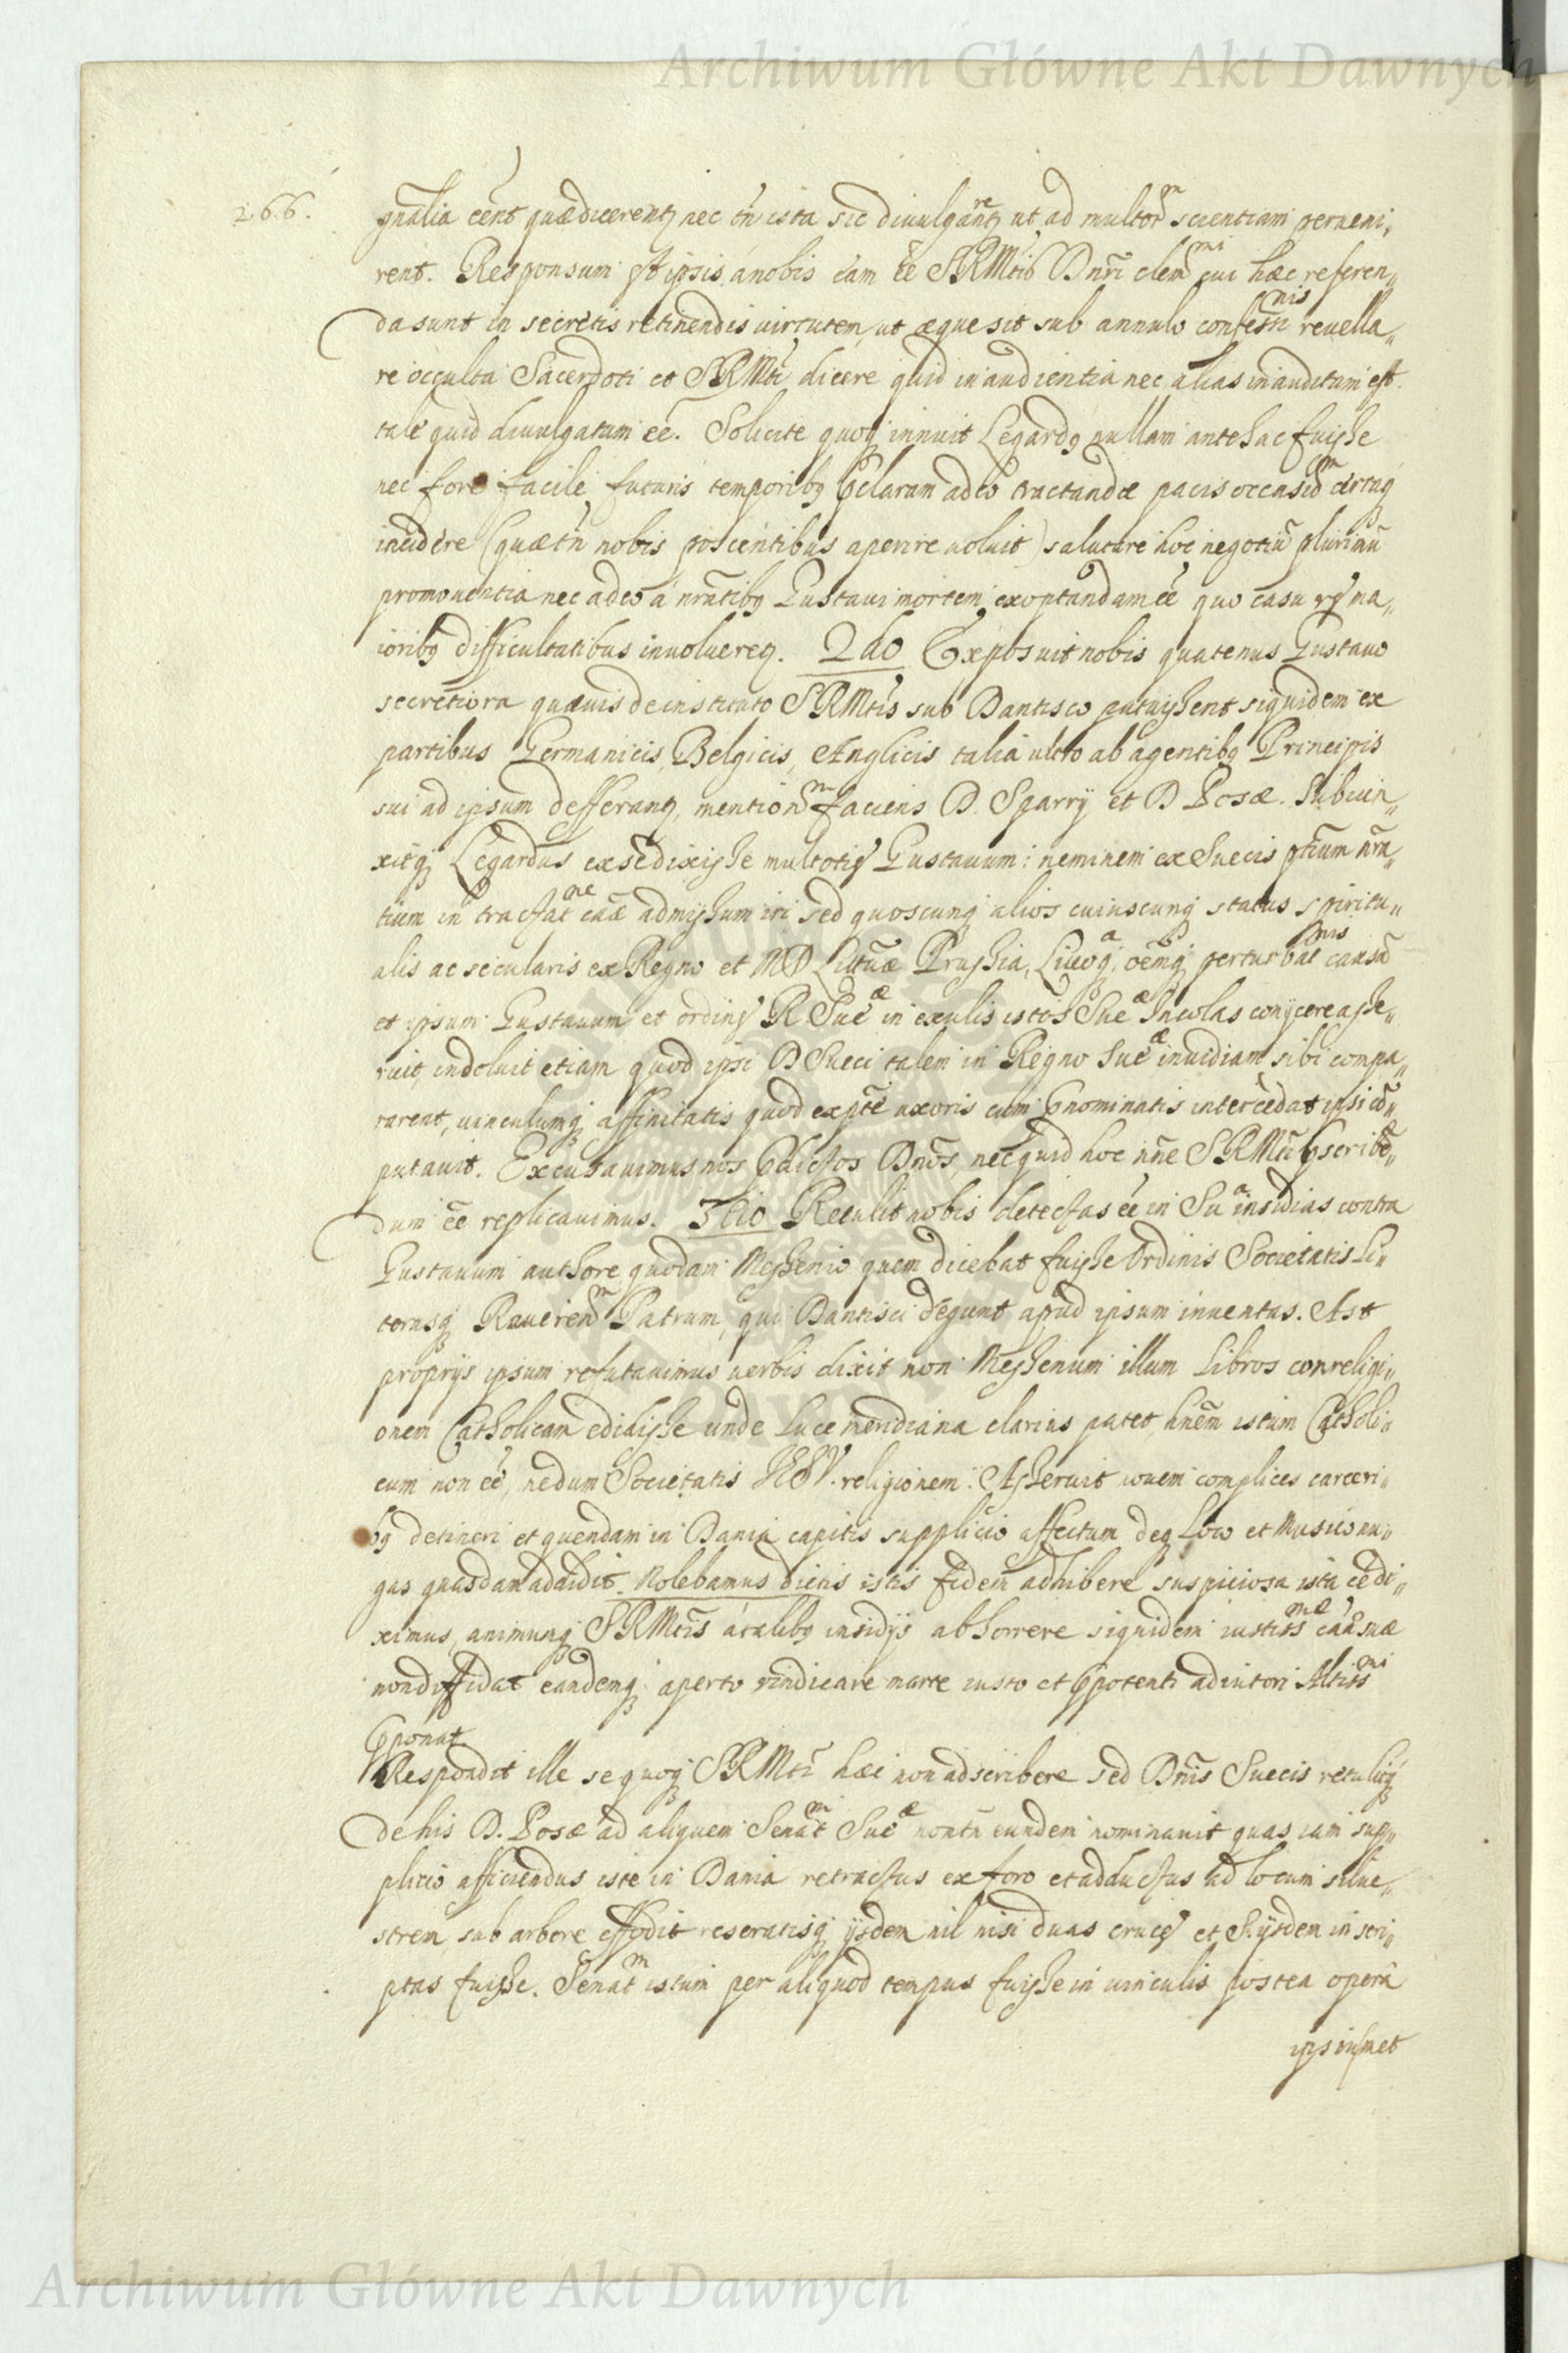 Archiwum Główne Akt Dawnych
266.
gnãlia eent quæ dicerentz nec tn ista sic divulgarentz ut ad multorm scientiam perveni„
rent. Responsum est ipsis a nobis eam ee SRMtis Dnri clemmi cui hæc referen„
da sunt in secretis retinendis virtutem, ut æque sit sub annulo confessnis revella„
re occulta Sacerdoti et SRMti dicere quid in audientia nec alias inauditum est
tale quid divulgatum eé. Solicite quoq innuit Legardg nullam antehac fuisse
nec fore facile futuris temporibg pclaram adeo tractandæ pacis occasiom
incidere (quæ tn nobis poscentibus aperire voluit) salutare hoc negotiũ plurimũ
promoventia nec adeo a nratibg Gustavi mortem exoptandam eé quo casu res ma„
ioribg difficultatibus involvereq. 2do Exposuit nobis quatenus Gustavo
secretiora quævis de instituto SRMtis sub Dantisco patuissent siquidem ex
partibus Germanicis, Belgicis, Anglicis talia ultro ab agentibg Principis
sui ad ipsum defferantz, mentionm faciens D. Sparry et D Posæ. Subiun„
xitq Legardus ex se dixisse multoties Gustavum: neminem ex Suecis ptium nra„
tium in tractatne eaẽ admissum iri sed quoscunq alios cuiuscunq status spiritu„
alis ac secularis ex Regno et MD Littuæ Prussia, Livoqa, oemq perturbatnis causã
et ipsum Gustavum et ordines R Sueæ in exulis istos Sueæ Incolas conijcere asse„
ruit, indoluit etiam quod ipsi D Sueci talem in Regno Sueæ invidiam sibi compa„
rarent, vinculumq affinitatis quod ex pte uxoris cum pnominatis intercedat ipsi im„
putavit. Excusavimus nos pdictos Dnos, nec quid hoc nne SRMti pscribẽ„
dum eẽ replicavimus. 3tio Retulit nobis detectas eé in Sua insidias contra
Gustavum authore quodam Messenio quem dicebat fuisse Ordinis Societatis Li„
terasq Reverenm Patrum, qui Dantisci degunt apud ipsum inventas. Ast
proprys ipsum refutavimus verbis dixit non Messenium illum Libros con religi„
onem Catholicam edidisse unde luce meridiana clarius patet, hnem istum Catholi„
cum non eé, nedum Societatis IESV. religionem. Asseruit novem complices carceri„
bg detineri et quendam in Dania capitis supplicio affectum deq Low et Musico nu„
gas quasdam addidit. Nolebamus dictis istis fidem adhibere suspiciosa ista eé di„
ximus, animumq SRMtis a talibg insidys abhorrere siquidem iustissmæ causæ suæ
non diffidat eandemq aperto vindicare marte iusto et ppotenti adiutori Altissmi
pponat.
Respondit ille se quoq SRMti hæc non adscribere sed Dnis Suecis retulitq
de his D. Posæ ad aliquem Senatm Sueæ non tn eundem nominavit quas iam sup„
plicio afficiendus iste in Dania retractus ex foro et adductus ad locum silve„
strem sub arbore effodit reseratisq ysdem nil nisi duas cruces et S. ysdem in scri„
ptas fuisse. Senatm istum per aliquod tempus fuisse in vinculis postea opera
ipsiusmet
Archiwum Główne Akt Dawnych